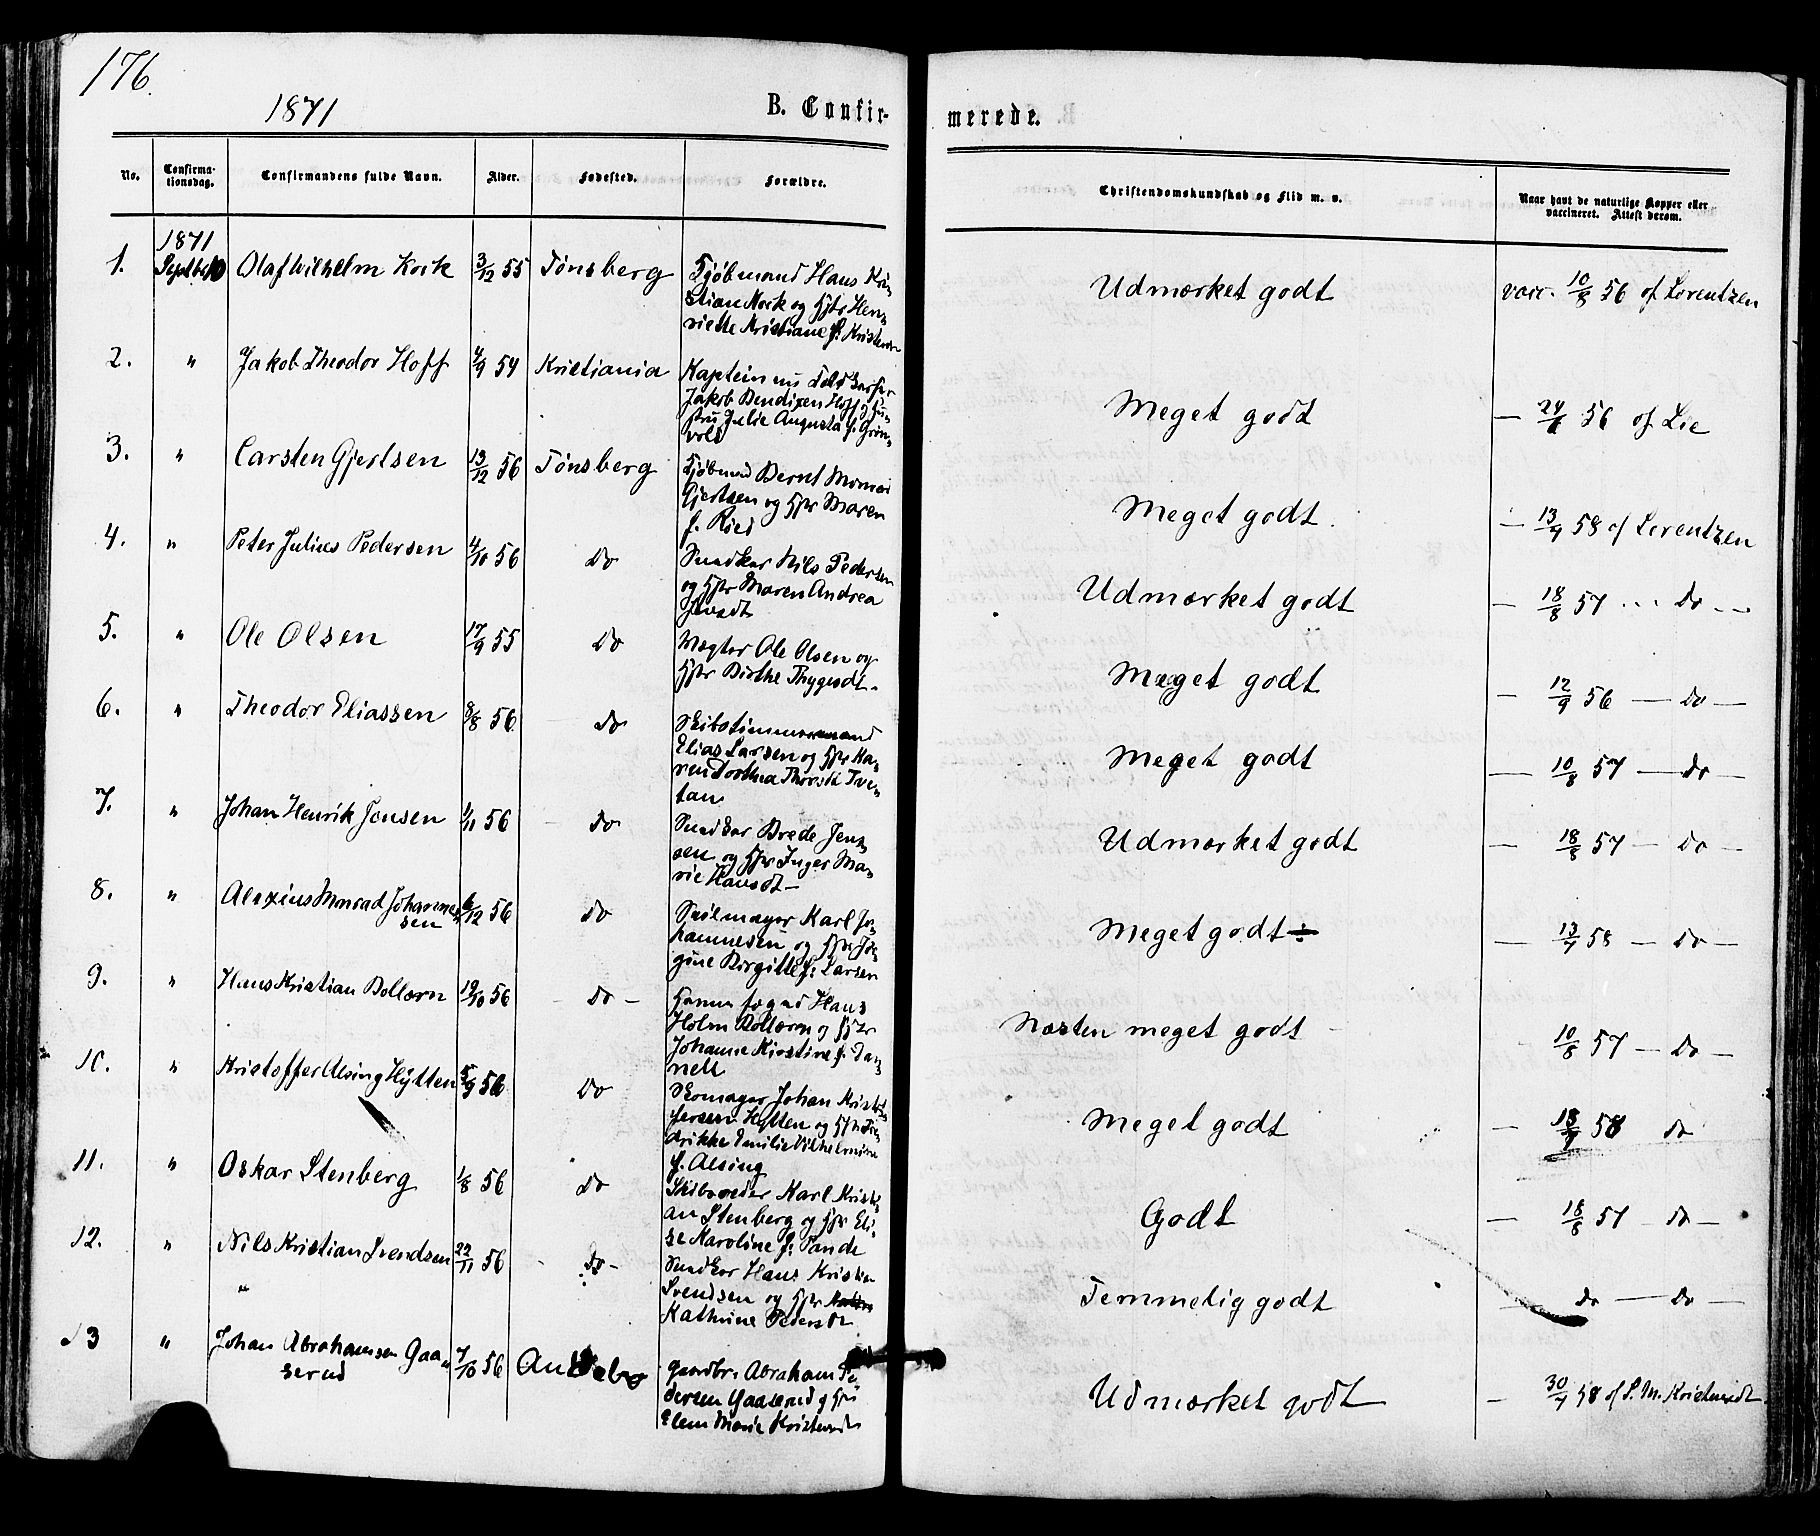 176.
1871
B. Confirmerede.
No. Confirmationsdag. Confirmandens fulde Navn. Alder. Fødested. Forældre. Christendomskundskab og Flid m. v. Naar havt de naturlige Kopper eller vaccineret. Attest derom.
1. 1871 Septbr 10 Olaf Wilhelm 3/12 55 Tønsberg
Kjøbmand Hans Kri-
stian og Hstr Hen-
riette Kristiane f. Kristensen
Udmærket godt vacc. 10/8 56 af Lorentzen
2. " Jakob Theodor Hoff 4/9 54 Kristiania
Kaptein nu Toldkasser
Jakob Bendixen Hoff og Hu-
stru Julie Augusta f. Grøn-
vold
Meget godt — 24/6 56 af Lie
3. " Carsten Gjertsen 13/12 56 Tønsberg
Kjøbmd Bernt
Gjertsen og Hstr Maren
f. Ried
Meget godt — 13/9 58 af Lorentzen
4. " Peter Julius Pedersen 4/10 56 Do
Snedker Nils Pedersen
og Hstr Maren Andrea
Udmærket godt — 18/8 57 — Do —
5. " Ole Olsen 17/9 55 Do
Vægter Ole Olsen og
Hstr Birthe Thygesdt.
Meget godt — 12/9 56 — Do —
6. " Theodor Eliassen 8/8 56 Do
Skibstimmermand
Elias Larsen og Hstr Ka-
ren Dorthea Thorsdt Tve-
tan
Meget godt — 10/8 57 — Do —
7. " Johan Henrik Jensen 1/11 56 Do
Snedker Brede Jens-
sen og Hstr Inger Ma-
rie Hansdt —
Udmærket godt — 18/8 57 — Do —
8. " Alexius Konrad Johannes-
sen 6/12 56 Do
Seilmager Karl Jo-
hannesen og Hstr Jør-
gine Birgitte f. Larsen
Meget godt ÷ — 13/9 58 — Do —
9. " Hans Kristian Bollærn 19/10 56 — Do —
Hans
Holm Bollærn og Hstr
Johanne Kirstine f. Dan-
nell
Næsten meget godt 10/8 57 — Do —
10. " Kristoffer Alsing Hytten 5/9 56 Do
Skomager Johan Kristof-
fersen Hytten og Hstr Fre-
drikke Emilie Vilhelmine
f. Alsing
Meget godt — 13/9 58 Do
11. " Oskar Stenberg 1/8 56 Do
Skibsreder Karl Kristi-
an Stenberg og Hstr Eli-
se Karoline f. Tande
Godt — 18/8 57 — Do —
12. " Nils Kristian Svendsen 22/11 56 — Do —
"
Snedker Hans Kristian
Svendsen og Hstr
Kathrine Pedersdt
Temmelig godt — Do — Do —
13 " Johan Abrahamsen Gaa-
serud 7/10 56 Andebo
Gaardbr. Abraham Pe-
dersen Gaaserud og Hstr
Elen Marie Kristensdt
Udmærket godt — 30/9 58 af S. M. Kristensdt.